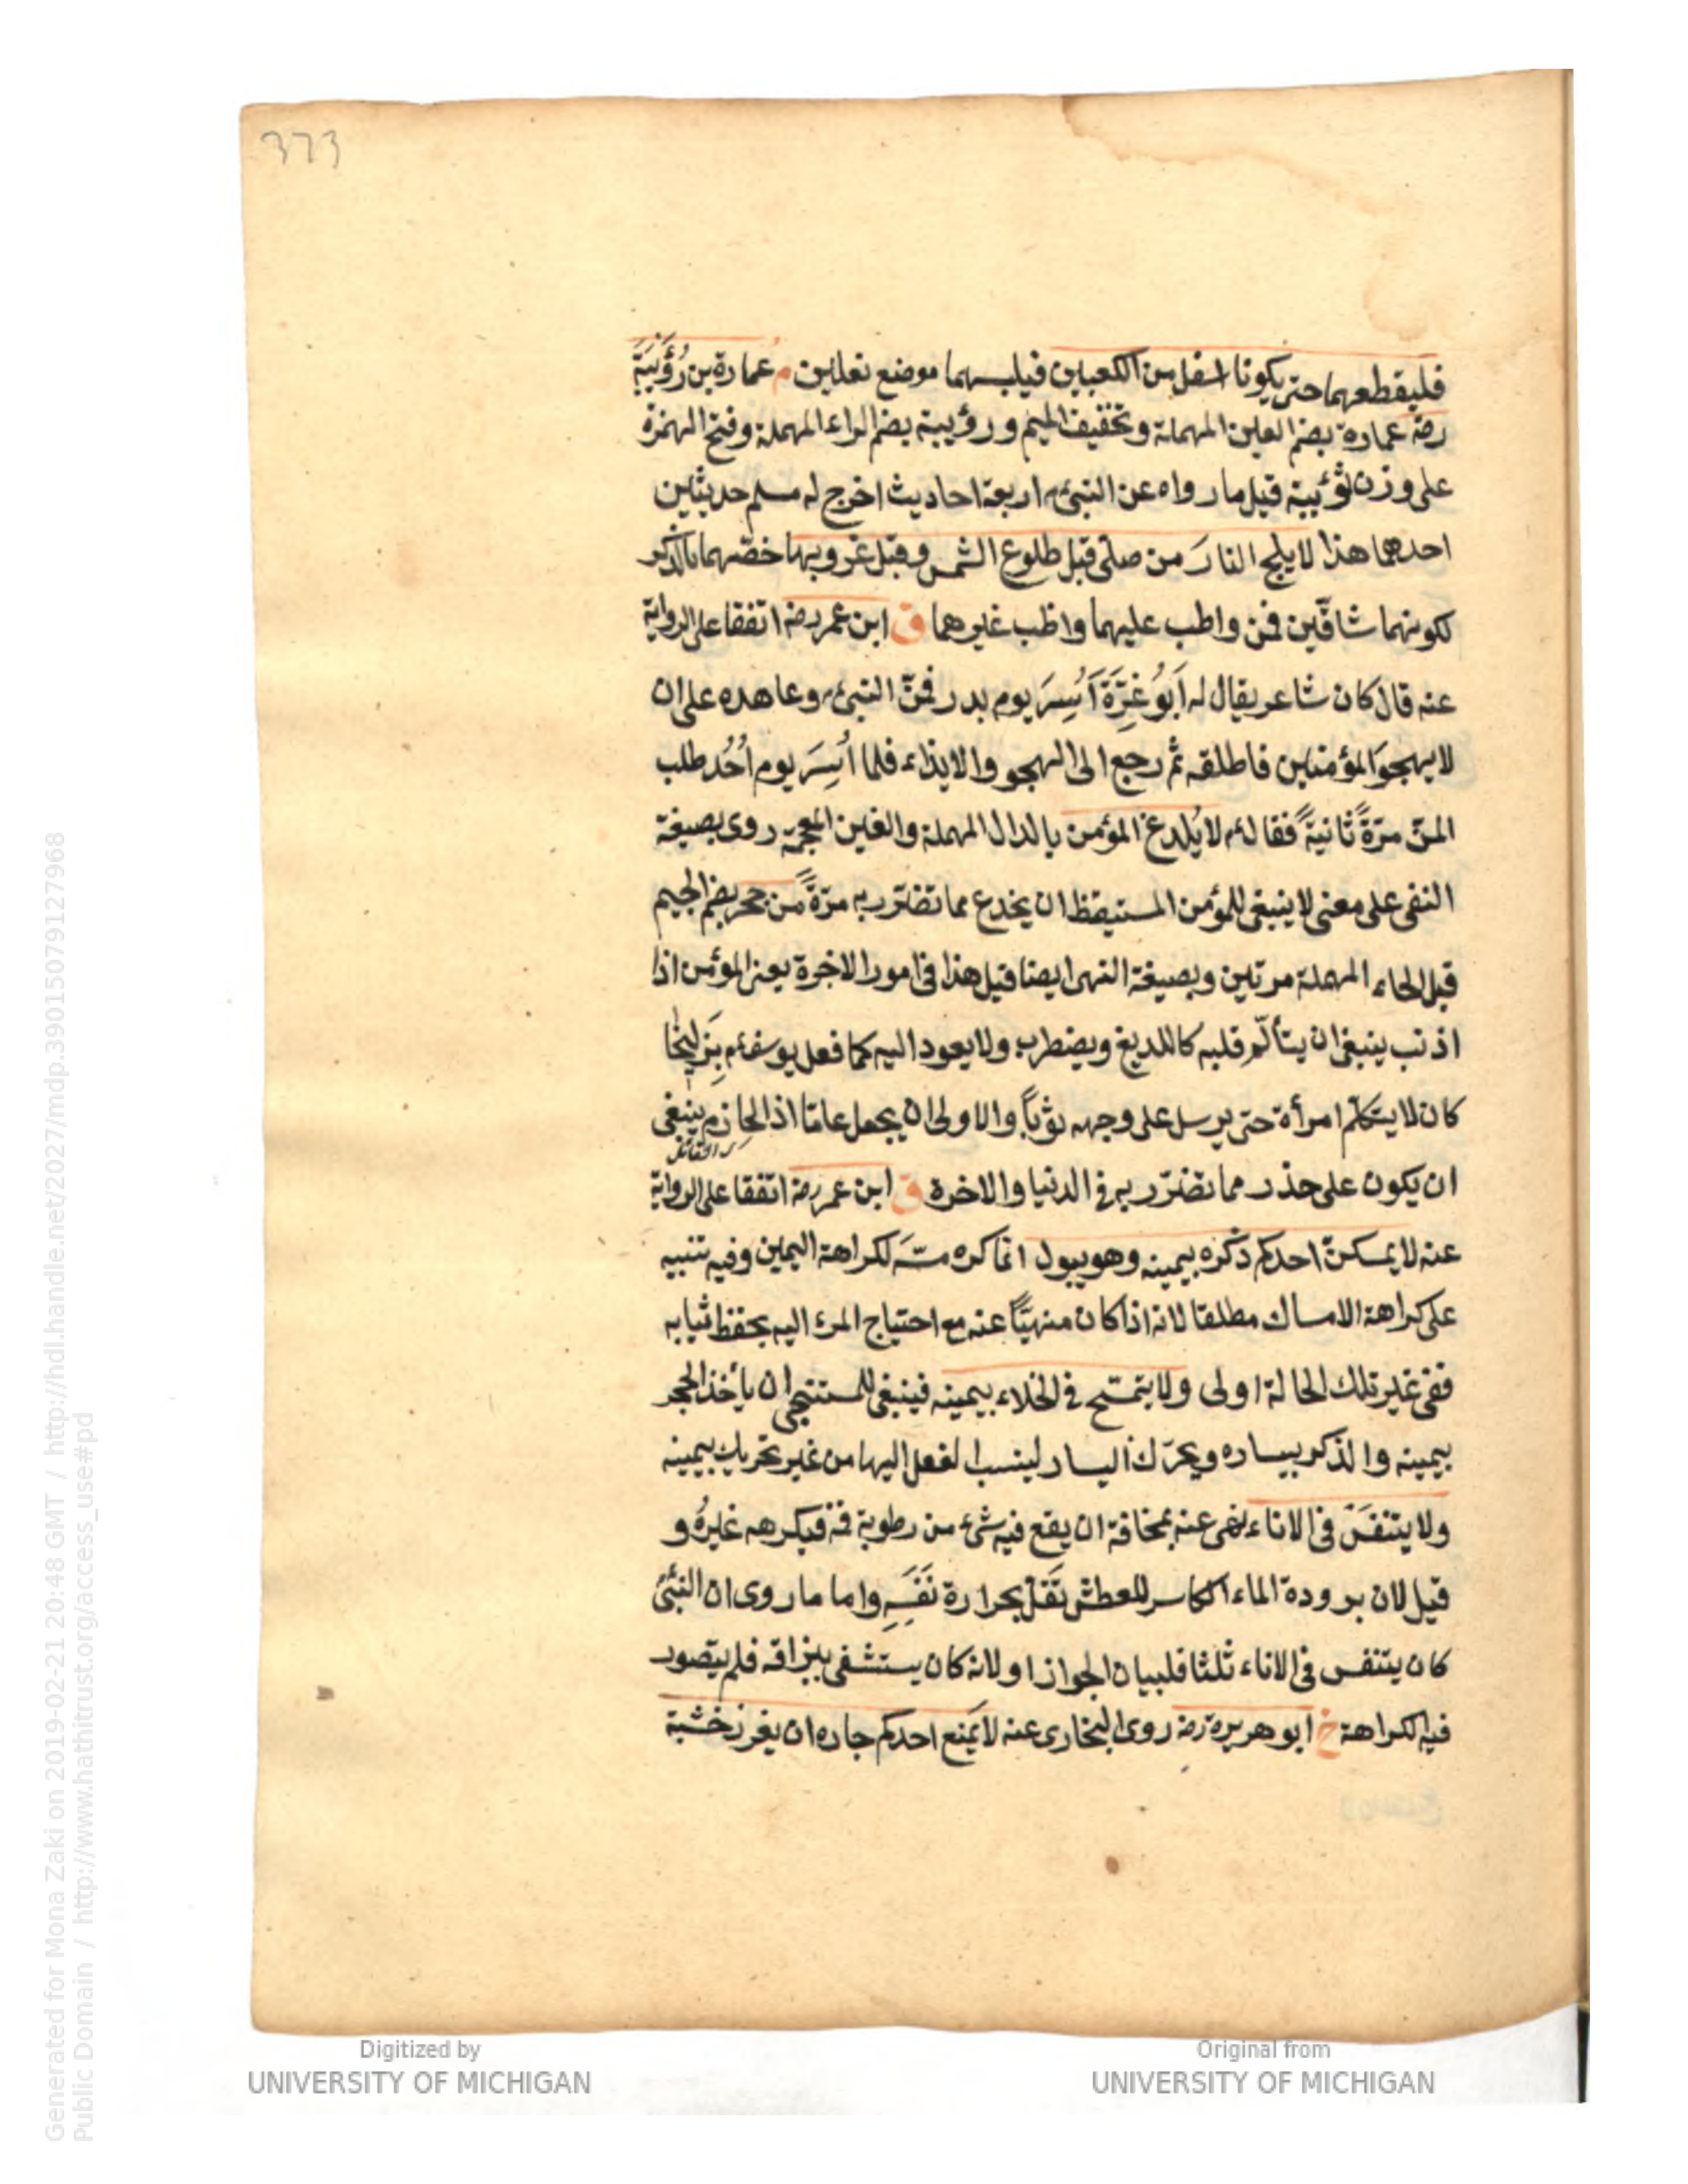 373
فليقطعهما حتى يكونا اسفل من الكعبين فيلبسهما موضع نعلين م عمارة بن رُؤَيْبَةَ
رضه عمارة بضم العين المهملة وتخفيف الميم ورؤيبة بضم الراء المهملة وفتح الهمزة
على وزن ثؤيبة قيل ما رواه عن النبىء م اربعة احاديث اخرج له مسلم حديثين
احدهما هذا لا يلج النارَ من صلّى قبل طلوع الشمس وقبل غروبها خصّهما بالذكر
لكونهما شاقّين فمن واظب عليهما واظب غيرهما ق ابن عمر رضه اتفقا على الرواية
عنه قال كان شاعر يقال له اَبُو غِرَّةَ اُسِرَ يوم بدر فمنّ النبىء م وعاهده على ان
لا يهجوَ المؤمنين فاطلقه ثم رجع الى الهجو والايذاء فلما اُسِرَ يوم اُحُد طلب
المنّ مرّةً ثانيةً فقال ءم لا يُلدغ المؤمن بالدال المهملة والغين المعجمة روى بصيغة
النفى على معنى لا ينبغى للمؤمن المستيقظ ان يخدع مما تضرّر به مرّةً من جحر بضم الجيم
قبل الحاء المهملة مرتين وبصيغة النهى ايضا قيل هذا فى امور الاخرة يعنى المؤمن اذا
اذنب ينبغى ان يتألّم قلبه كاللديغ ويضطرب ولا يعود اليه كما فعل يوسف ءم بِزَليخا
كان لا يتكلم امرأة حتى يرسل على وجهه ثوباً والاولى ان يجعل عامّا اذ الحازم ينبغى
ان يكون على حذر مما تضرّر به فى الدنيا والاخرة ق ابن عمر رضه اتفقا على الرواية
عنه لا يمسكنّ احدكم ذكره بيمينه وهو يبول انما كره مسّه لكراهة اليمين وفيه تنبيه
على كراهة الامساك مطلقا لانه اذا كان منهيّاً عنه مع احتياج المرء اليه بحفظ ثيابه
ففى غير تلك الحالة اولى ولا يتمسّح فى الخلاء بيمينه فينبغى للمستنجى ان يأخذ الحجر
بيمينه والذكر بيساره ويحرّك اليسار لينسب الفعل اليها من غير تحريك بيمينه
ولا يتنفسَ فى الاناء نهى عنه مخافة ان يقع فيه شئ من رطوبة فه فيكرهه غيرُه و
قيل لان برودة الماء الكاسر للعطش تَقلّ بحرارة نَفَسِهِ واما ما روى ان النبىء
كان يتنفس فى الاناء ثلثا فلبيان الجواز او لانه كان يستشفى ببزاقه فلم يتصور
فيه الكراهة خ ابو هريرة رضه روى البخارى عنه لا يَمنع احدكم جاره ان يغرز خشبة
Digitized by
UNIVERSITY OF MICHIGAN
Original from
UNIVERSITY OF MICHIGAN
Generated for Mona Zaki on 2019-02-21 20:48 GMT / http://hdl.handle.net/2027/mdp.39015079127968
Public Domain / http://www.hathitrust.org/access_use#pd